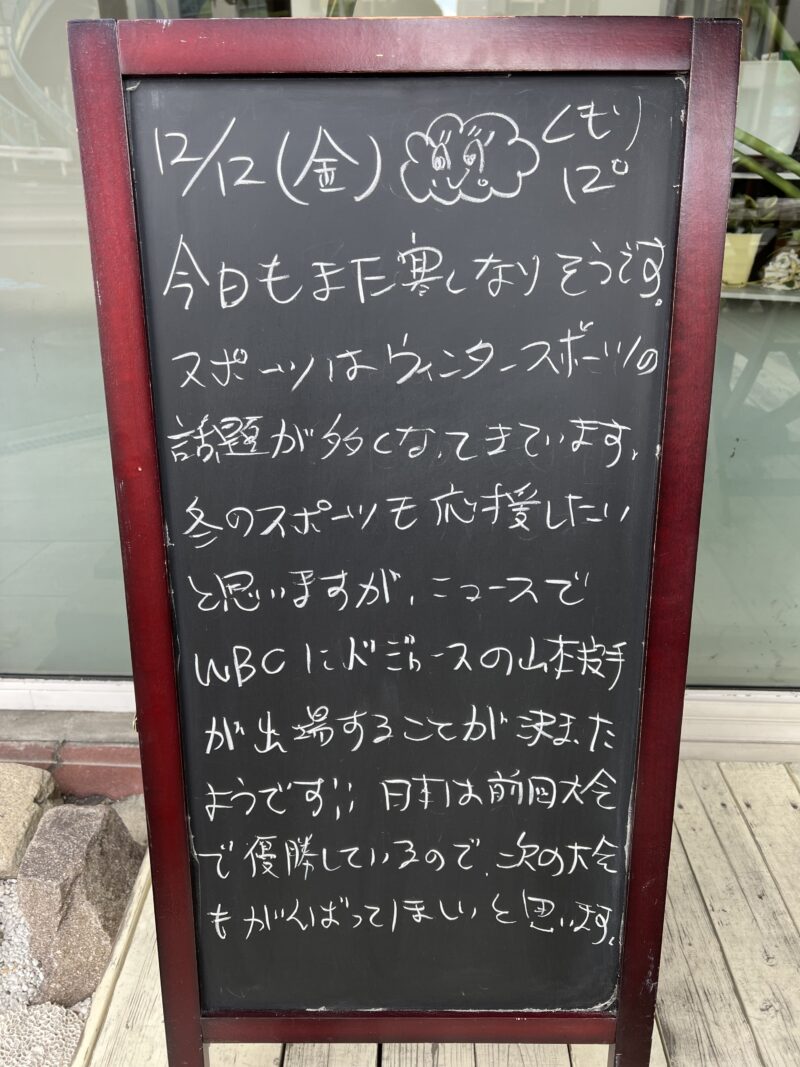 12/12(金) くもり
12°
今日もまた寒くなりそうです。
スポーツはウィンタースポーツの
話題が多くなってきています。
冬のスポーツも応援したい
と思いますが、ニュースで
WBCにドジャースの山本投手
が出場することが決まった
ようです!! 日本は前回大会
で優勝しているので、次の大会
もがんばってほしいと思います。